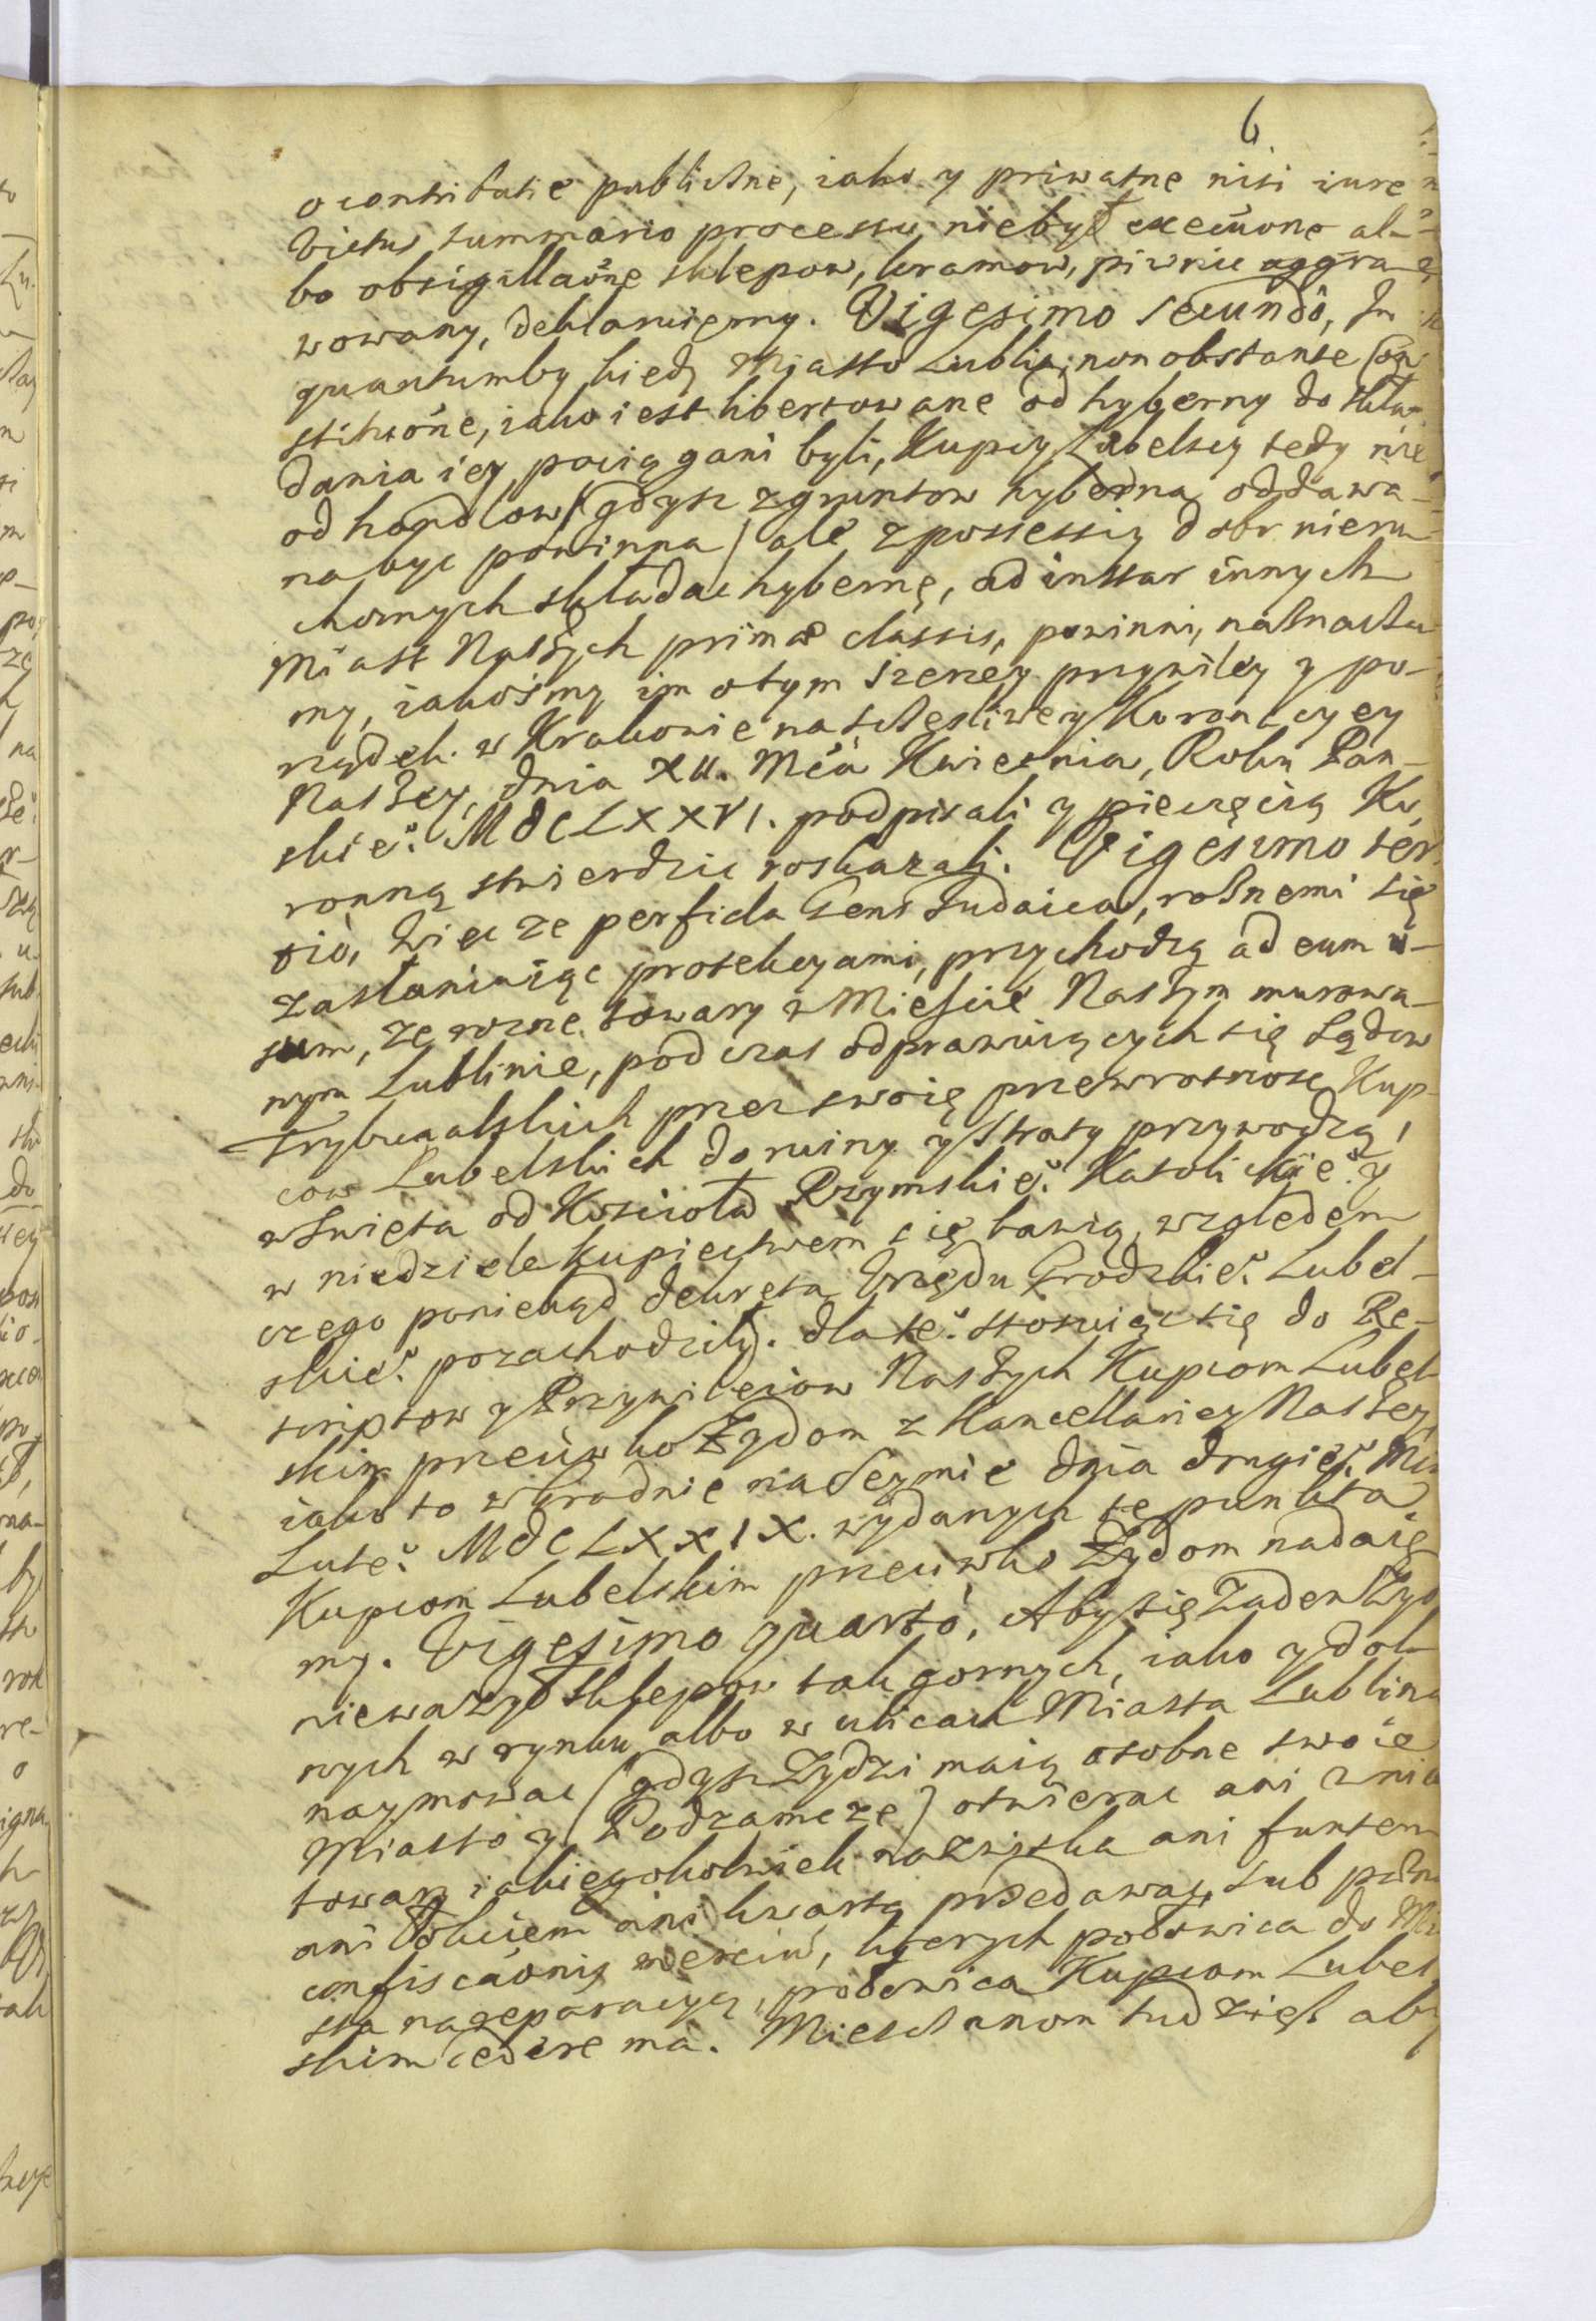 6
o contributie publiczne, iako y priwatne nisi iure
victus summario processu niebył execuoνe al-
bo obsigillaoną sklepow, kramow, piwnic aggra-
wowany, deklaruiemy. Vigesimo secundo, In
quantumby kiedy Miasto Lublin, non obstante Con
stitutione, iako iest libertowane od hyberny do skła-
dania iey pociągani byli, Kupcy Lubelscy tedy nie
od handlow (gdysz z gruntow hyberna oddawa-
na byc powinna) ale z possessiy dobr nieru-
chomych składac hybernę, ad instar innych
Miast Naszych primæ classis, powinni, naznacza
my, iakośmy im o tym szerzey przywiley y po-
rządek w Krakowie na szczesliwey Koronacyey
Naszey, dnia XII. Mca Kwietnia, Roku Pan-
skie° MDCLXXVI. podpisali y pieczęcią Ko-
ronną stwierdzic roskazali. Vigesimo ter
tio, Więc ze perfida Gens Judaica, roznemi się
zasłaniaiąc protekcyami, przychodzą ad eum u-
sum, ze rozne towary w Miescie Naszym murowa-
nym Lublinie, podczas odprawuiących się Sądow
Trybunalskich przez swoię przewrotnosc Kup-
cow Lubelskich do ruiny y straty przywodzą,
w Swięta od Koscioła Rzymskie° Katolickie° y
w niedziele kupiectwem się bawią, względem
czego poniekąd dekreta Urzędu Grodzkie° Lubel-
skie° pozachodziły. dla te° stosuiąc się do Re-
scriptow y Przywileiow Naszych Kupcom Lubel-
skim przeciwko Zydom z Kancellariey Naszey
iako to w Grodnie na Seymie dnia drugie° Mca
Lute° MDCLXXIX. wydanych te punkta
Kupcom Lubelskim przeciwko Zydom nadaie
my. Vigesimo quarto, Aby się zaden Zyd
niewazył sklepow tak gornych, iako y dol-
nych w rynku albo w ulicach Miasta Lublina
naymowac (gdysz Zydzi maią osobne swoie
Miasto y Podzamcze) otwierac ani w nich
towary iakiegokolwiek nazwiska ani funtem
ani łokciem ani kwartą przedawac, sub pæna
confiscaonis rerum, ktorych połowica do Mia
sta na reparacyą, połowica Kupcom Lubel
skim cedere ma. Mieszczanom tudziesz aby